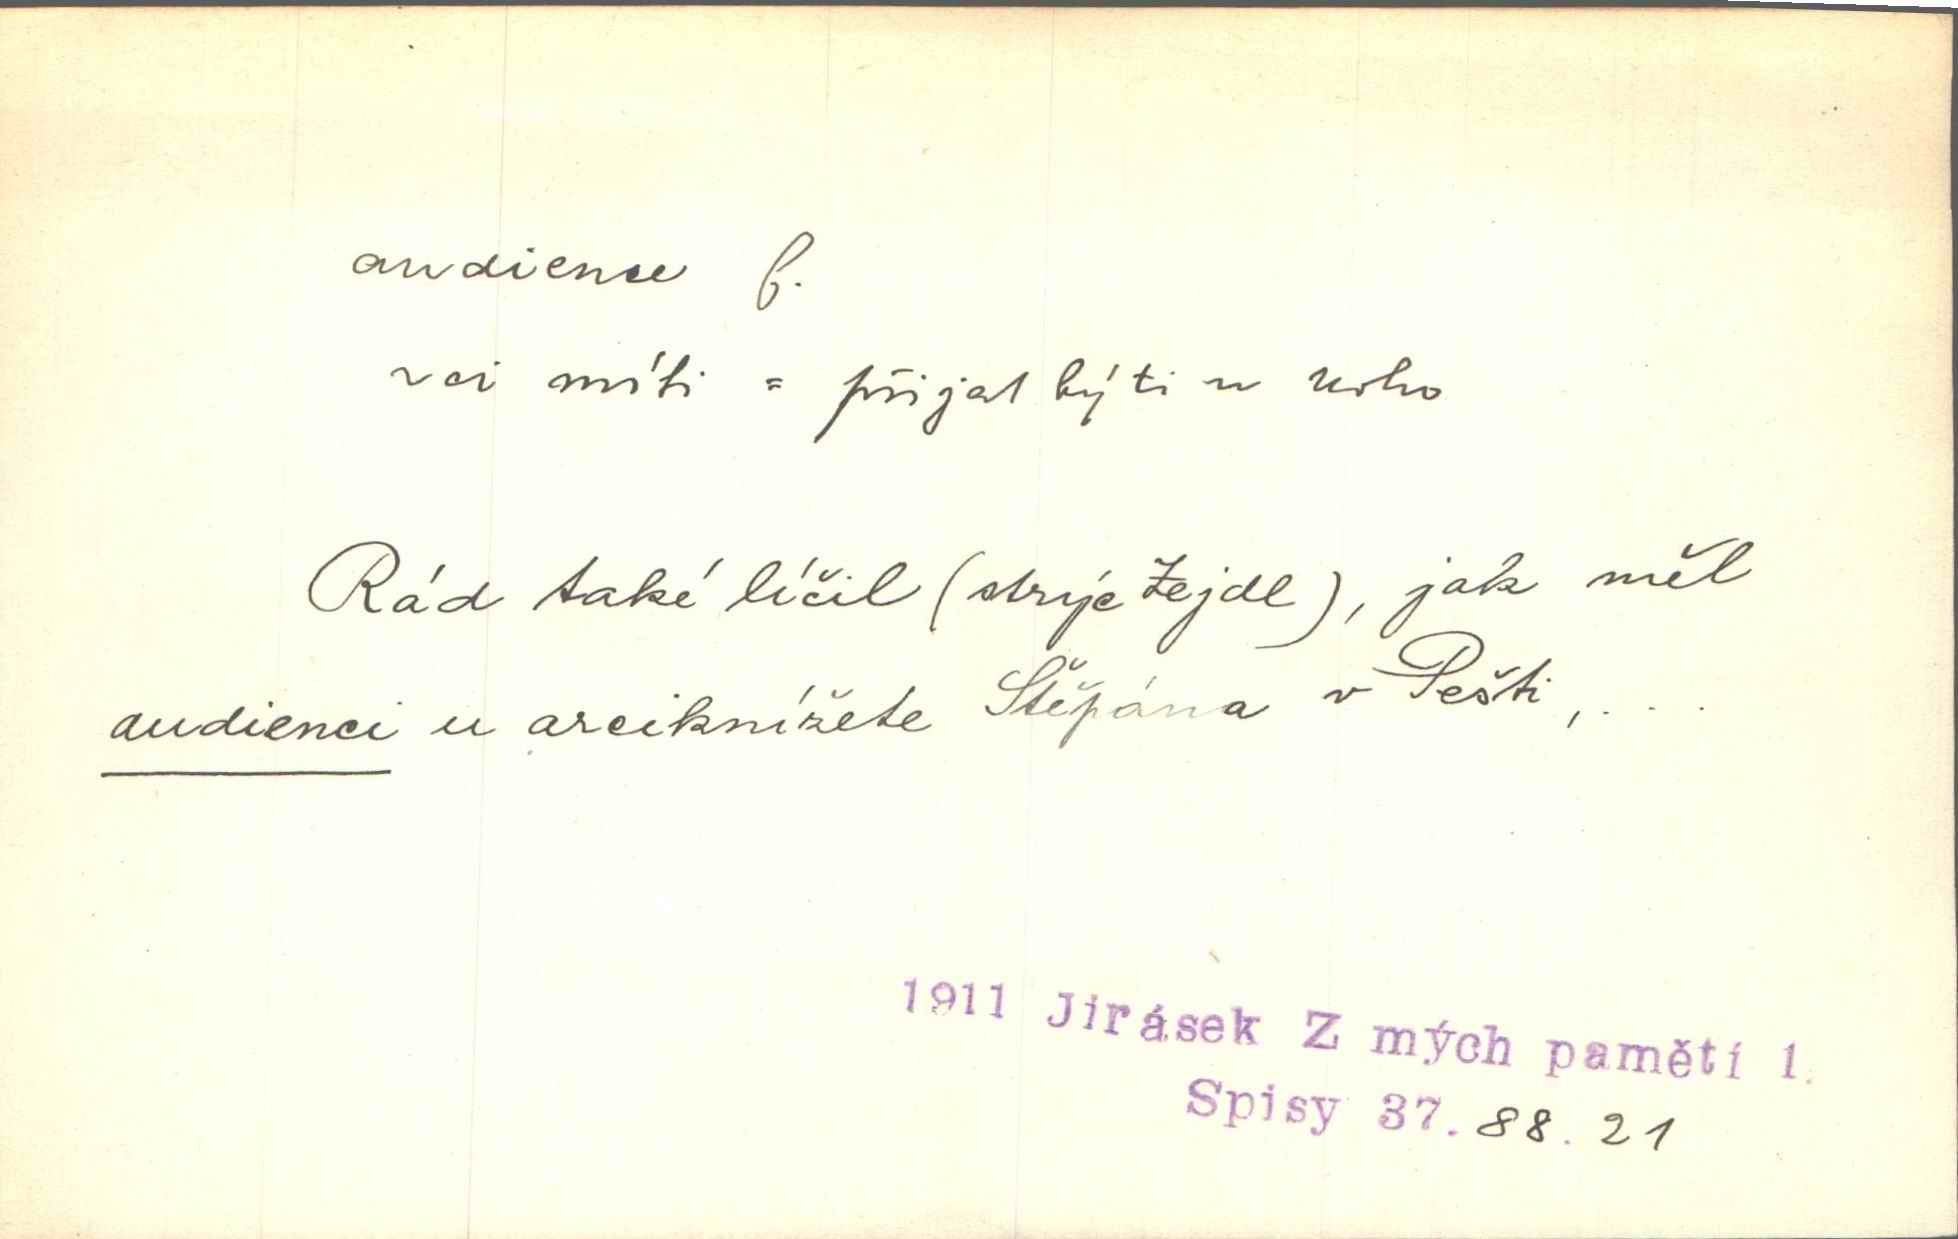 audience f.
~ci míti = přijat býti u koho
Rád také líčil (strýc Žejdl), jak měl
audienci u arciknížete Štěpána v Pešti, . . .
1911 Jirásek Z mých pamětí 1.
Spisy 37. 88. 21